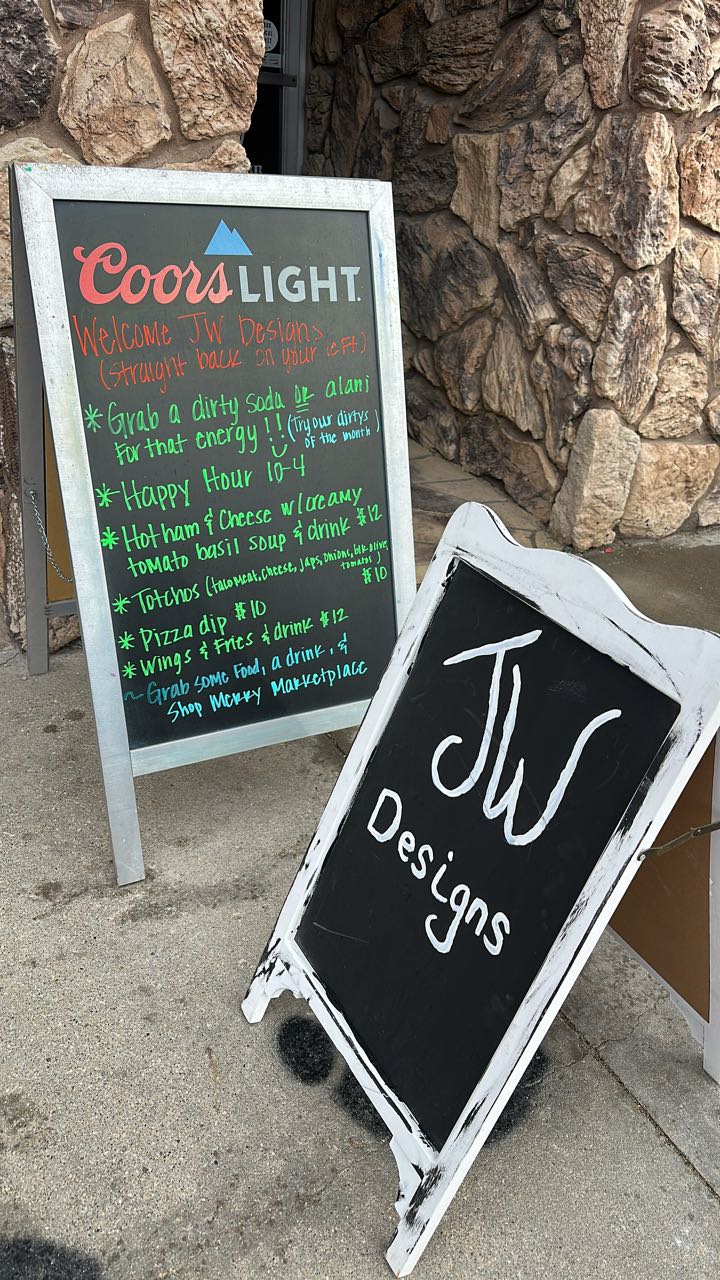 Coors LIGHT
Welcome JW Designs
(straight back on your left)
* Grab a dirty soda or alani
for that energy !! (Try our dirtys
of the month)
* Happy Hour 10-4
* Hot ham & Cheese w/creamy
tomato basil soup & drink $12
* Totchos (tacomeat, cheese, japs, onions, blk olive,
tomatos)
$10
* Pizza dip $10
* Wings & Fries & drink $12
~ Grab some Food, a drink, &
Shop Merry Marketplace
JW
Designs